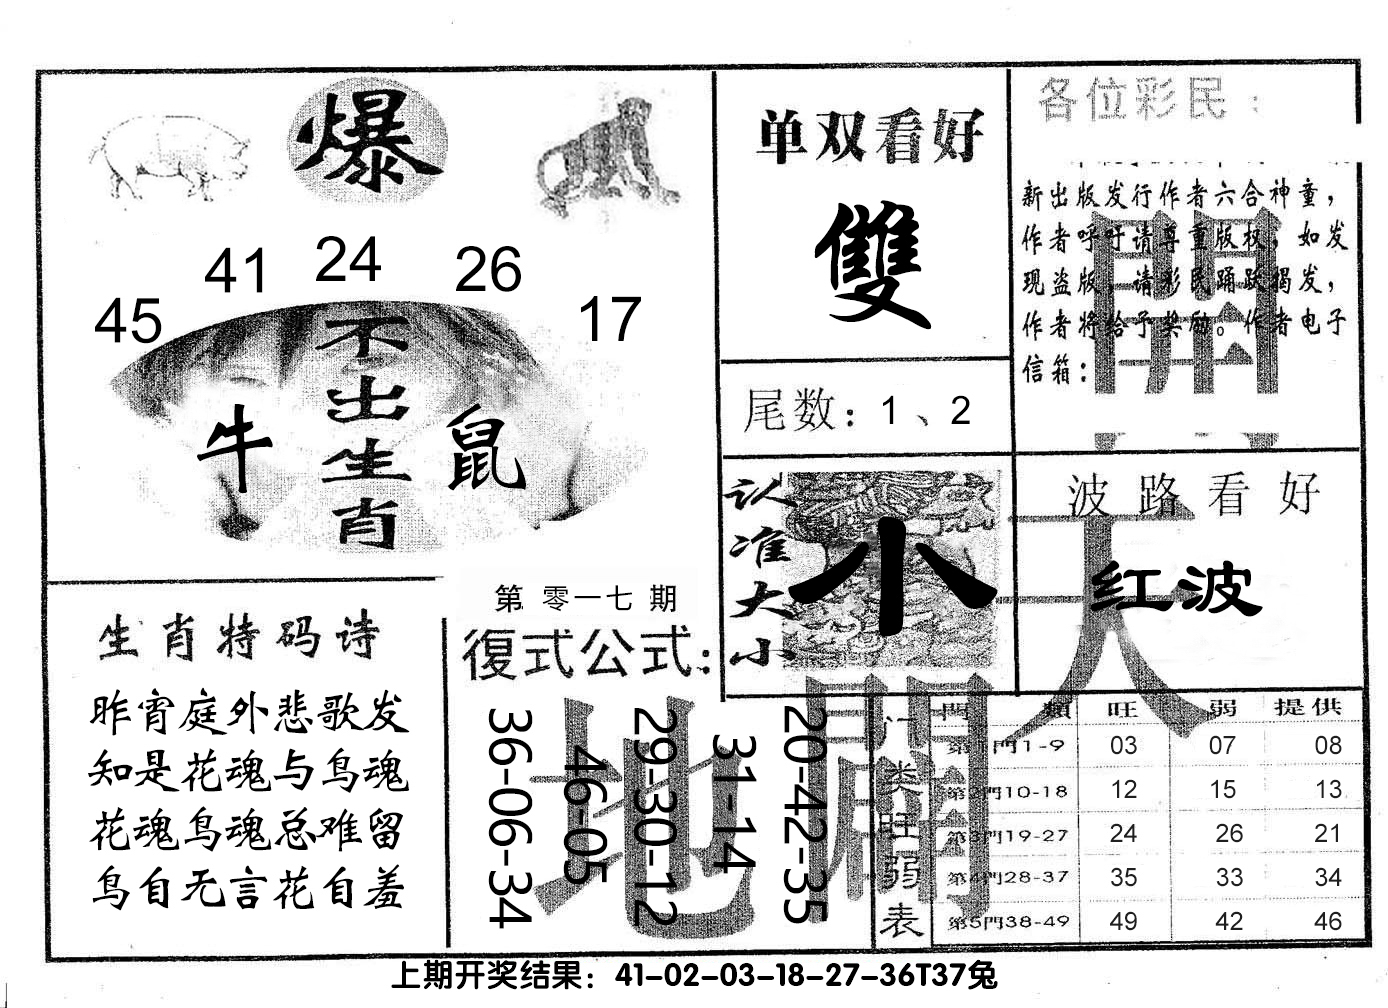 爆
45 41 24 26 17
不出生肖
牛 鼠
单双看好
雙
尾数：1、2
认准大小
小
各位彩民：
新出版发行作者六合神童，
作者呼吁请尊重版权，如发
现盗版，请彩民踊跃揭发，
作者将给予奖励。作者电子
信箱：
開
波路看好
红波
天
生肖特码诗
昨宵庭外悲歌发
知是花魂与鸟魂
花魂鸟魂总难留
鸟自无言花自羞
第零一七期
復式公式：
36-06-34
46-05
29-30-12
31-14
20-42-35
地
门类旺弱表
門類 旺 弱 提供
第1門1-9 03 07 08
第2門10-18 12 15 13
第3門19-27 24 26 21
第4門28-37 35 33 34
第5門38-49 49 42 46
上期开奖结果：41-02-03-18-27-36T37兔